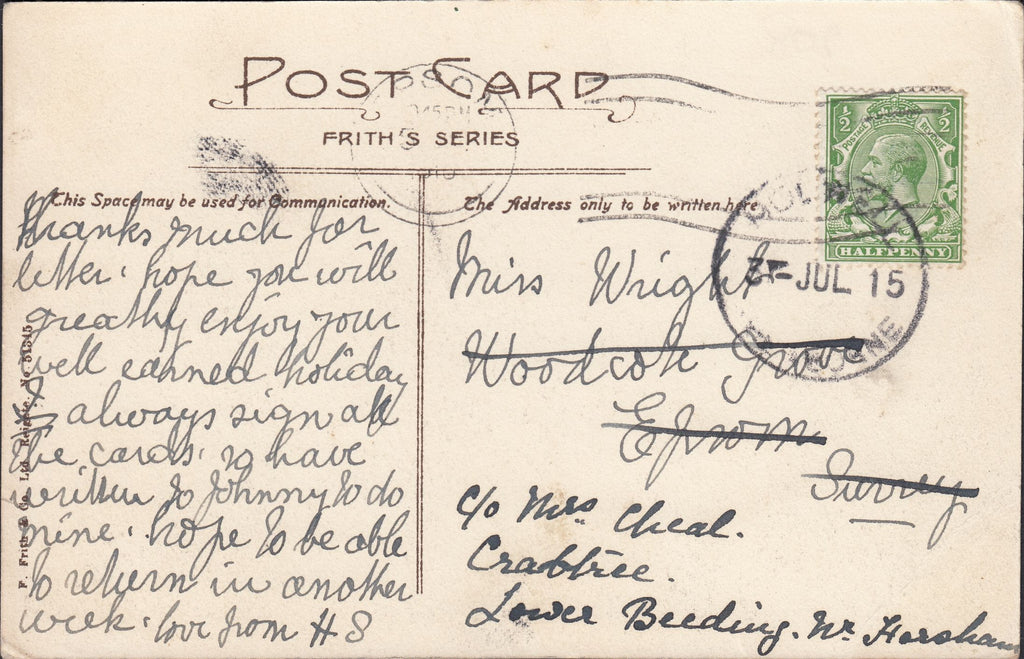 POST CARD
FRITH'S SERIES
This Space may be used for Communication.
The Address only to be written here.
½ ½
POSTAGE REVENUE
HALFPENNY
JUL 15
thanks much for
letter. hope you will
greatly enjoy your
well earned holiday
always sign all
the cards. so have
written to Johnny to do
mine. hope to be able
to return in another
week. love from H S
F. Frith & Co. Ltd. Reigate. No.
Miss Wright
Woodcote Grove
Epsom
Surrey
c/o Mrs Cheal.
Crabtree.
Lower Beeding. Nr Horsham